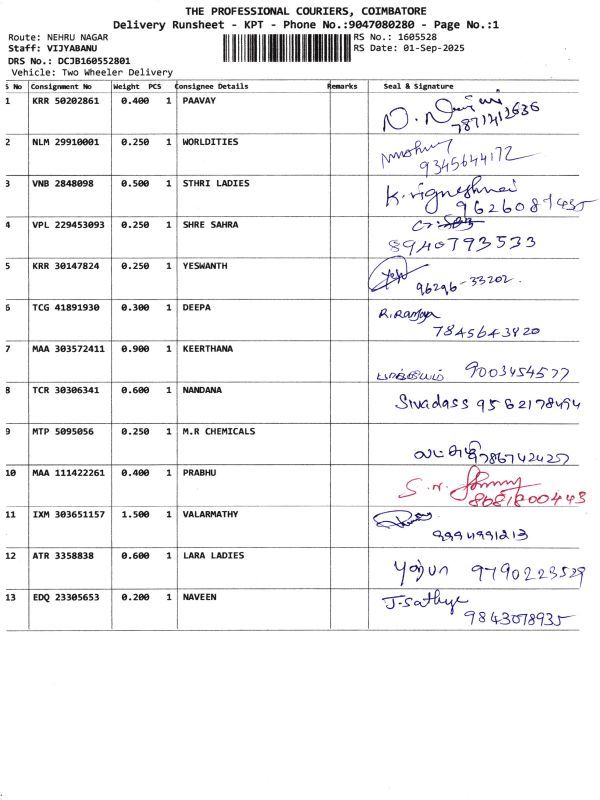 THE PROFESSIONAL COURIERS, COIMBATORE
Delivery Runsheet - KPT - Phone No.:9047080280 - Page No.:1
Route: NEHRU NAGAR RS No.: 1605528
Staff: VIJYABANU RS Date: 01-Sep-2025
DRS No.: DCJB160552801
Vehicle: Two Wheeler Delivery
S No Consignment No Weight PCS Consignee Details Remarks Seal & Signature
1 KRR 50202861 0.400 1 PAAVAY
2 NLM 29910001 0.250 1 WORLDITIES
9345644172
3 VNB 2848098 0.500 1 STHRI LADIES
4 VPL 229453093 0.250 1 SHRE SAHRA
8940793533
5 KRR 30147824 0.250 1 YESWANTH
96296-33202.
6 TCG 41891930 0.300 1 DEEPA
R. Ramya
7845643820
7 MAA 303572411 0.900 1 KEERTHANA
9003454577
8 TCR 30306341 0.600 1 NANDANA
Sivadass 9562178494
9 MTP 5095056 0.250 1 M.R CHEMICALS
9786742427
10 MAA 111422261 0.400 1 PRABHU
8681800443
11 IXM 303651157 1.500 1 VALARMATHY
9994991213
12 ATR 3358838 0.600 1 LARA LADIES
9790223529
13 EDQ 23305653 0.200 1 NAVEEN
J. Sathya
9843078935